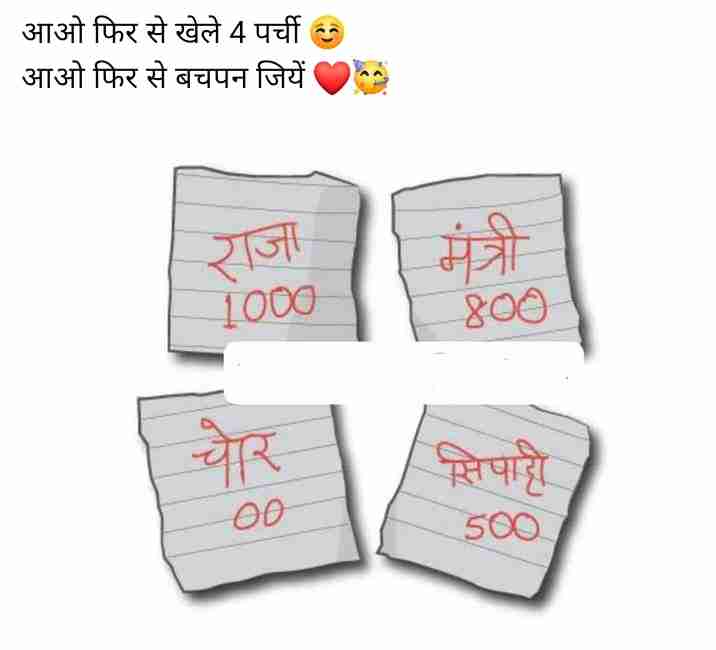 आओ फिर से खेले 4 पर्ची ☺️
आओ फिर से बचपन जियें ❤️🥳
राजा
1000
मंत्री
800
चोर
00
सिपाही
500